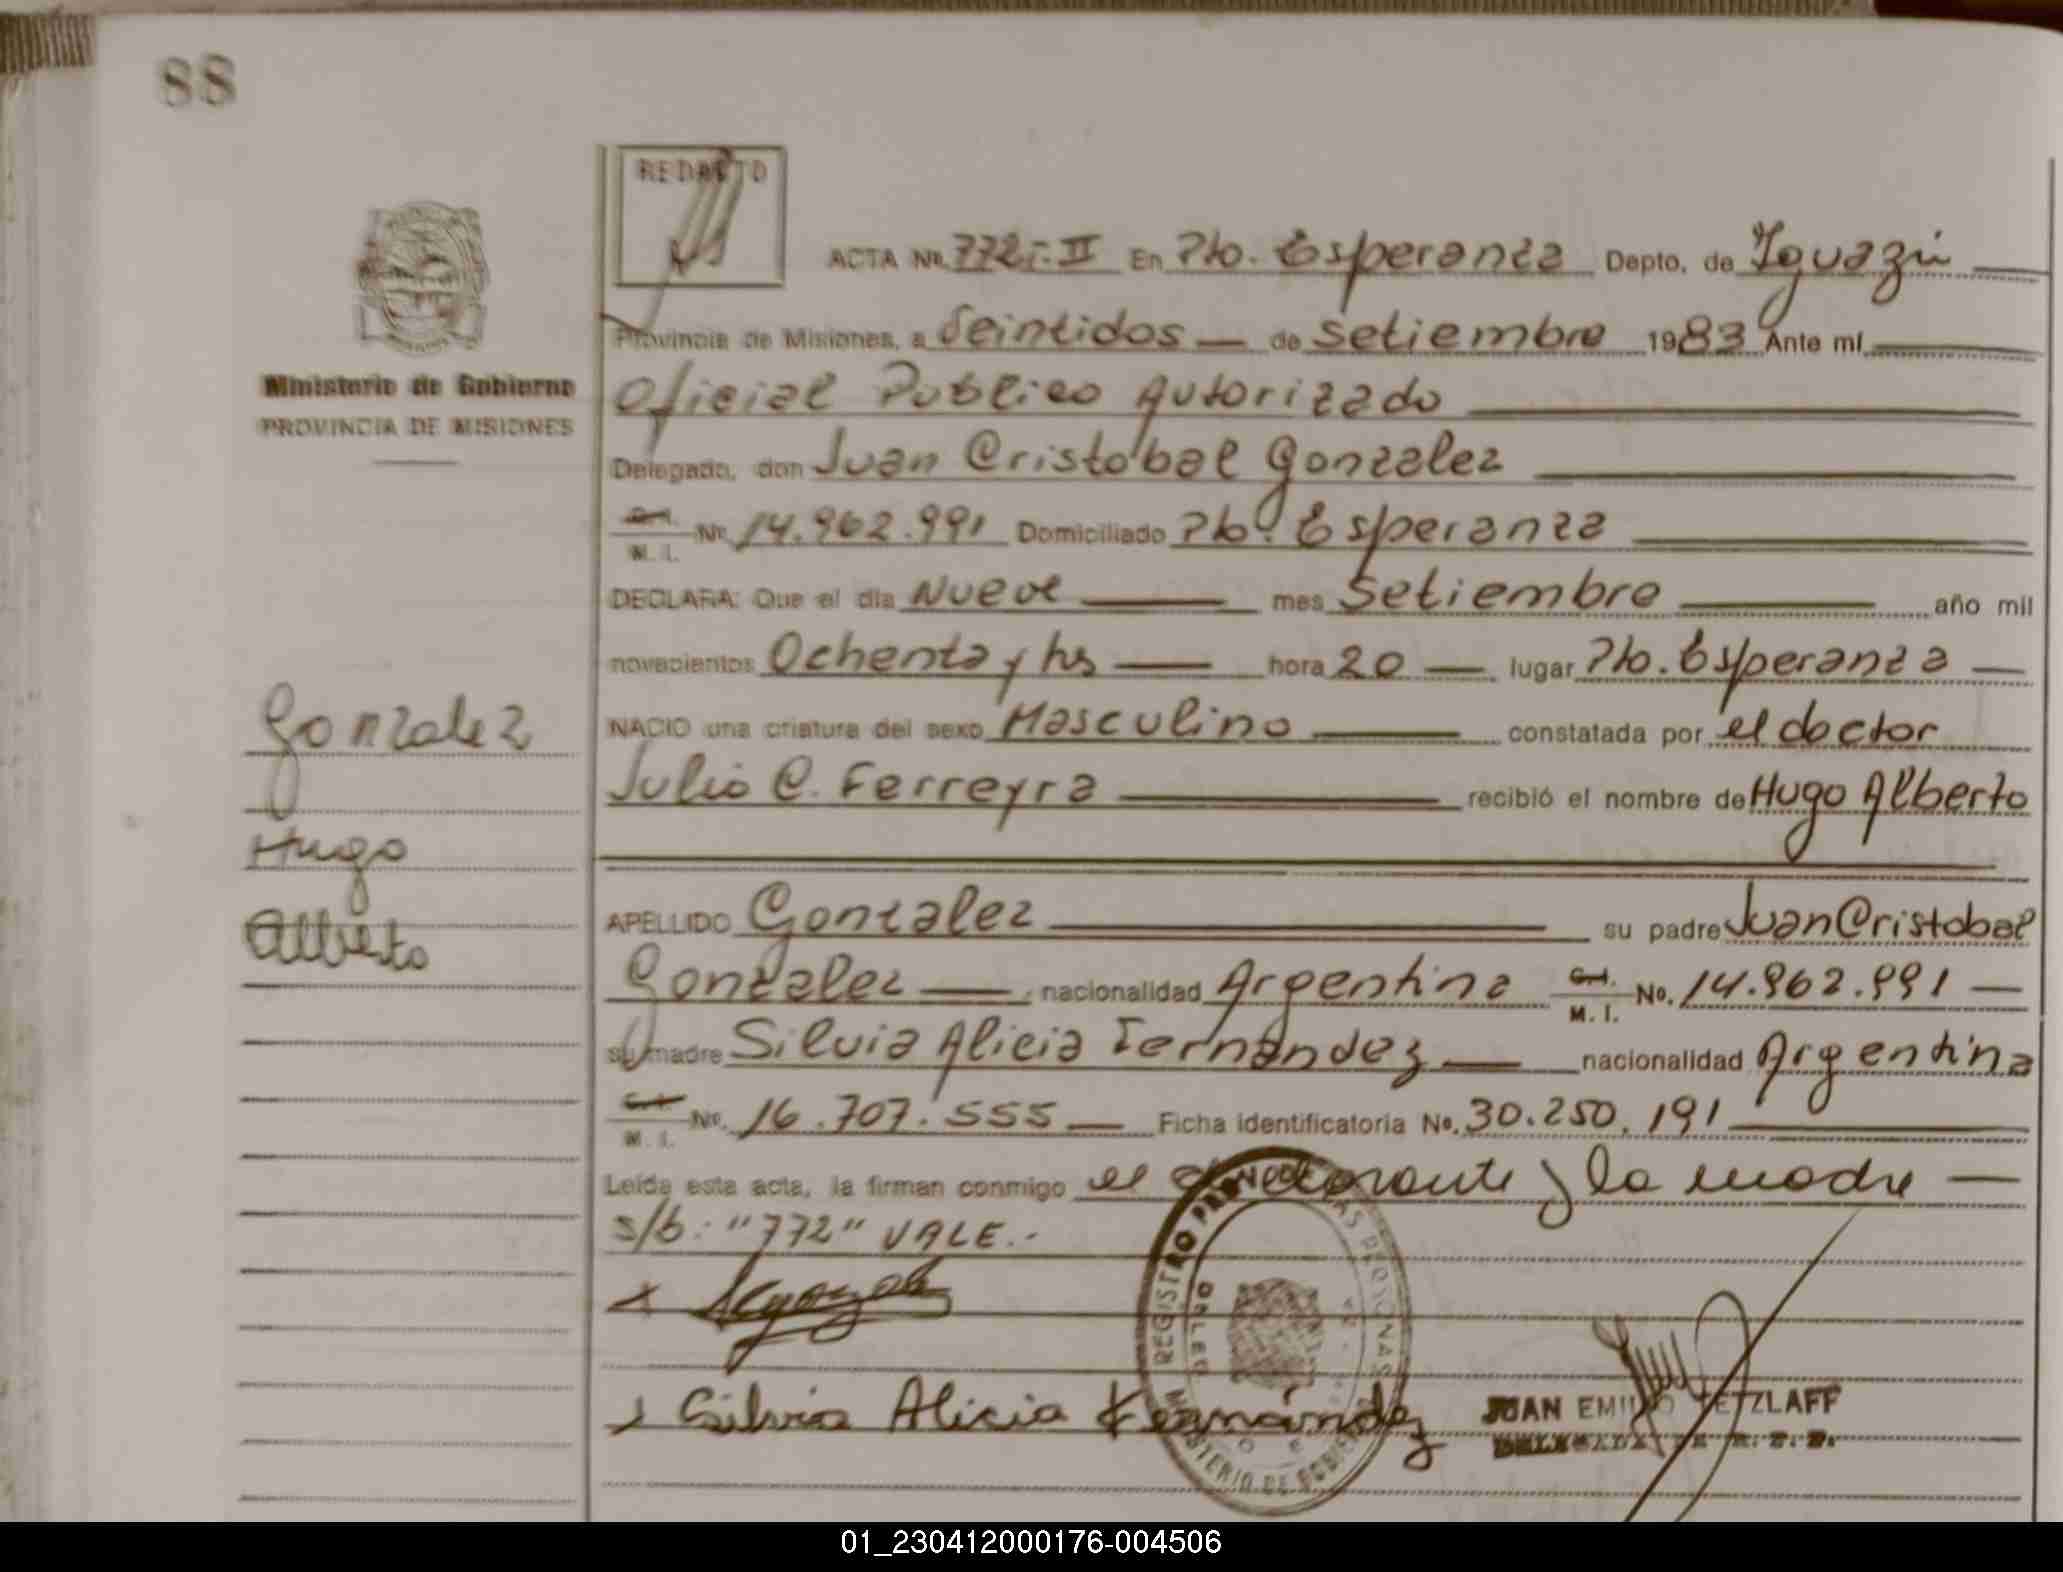 88
REDACTO
ACTA No. 772-II En Pto. Esperanza Depto. de Iguazú
Provincia de Misiones, a Veintidos de Setiembre 1983 Ante mí
Oficial Publico Autorizado
Ministerio de Gobierno
PROVINCIA DE MISIONES
Delegado, don Juan Cristobal Gonzalez
C.I. M. I. No. 14.962.991 Domiciliado Pto. Esperanza
DECLARA: Que el día Nueve mes Setiembre año mil
novecientos Ochenta y tres hora 20 lugar Pto. Esperanza
Gonzalez
NACIO una criatura del sexo Masculino constatada por el doctor
Julio C. Ferreyra recibió el nombre de Hugo Alberto
Hugo
Alberto
APELLIDO Gonzalez su padre Juan Cristobal
Gonzalez nacionalidad Argentina C.I. M. I. No. 14.962.991
su madre Silvia Alicia Fernandez nacionalidad Argentina
C.I. M. I. No. 16.707.555 Ficha identificatoria No. 30.250.191
Leída esta acta, la firman conmigo el declarante y la madre
s/b: "772" VALE.-
Silvia Alicia Fernández
REGISTRO PROVINCIAL DE LAS PERSONAS
MINISTERIO DE GOBIERNO
JUAN EMILIO RETZLAFF
01_230412000176-004506